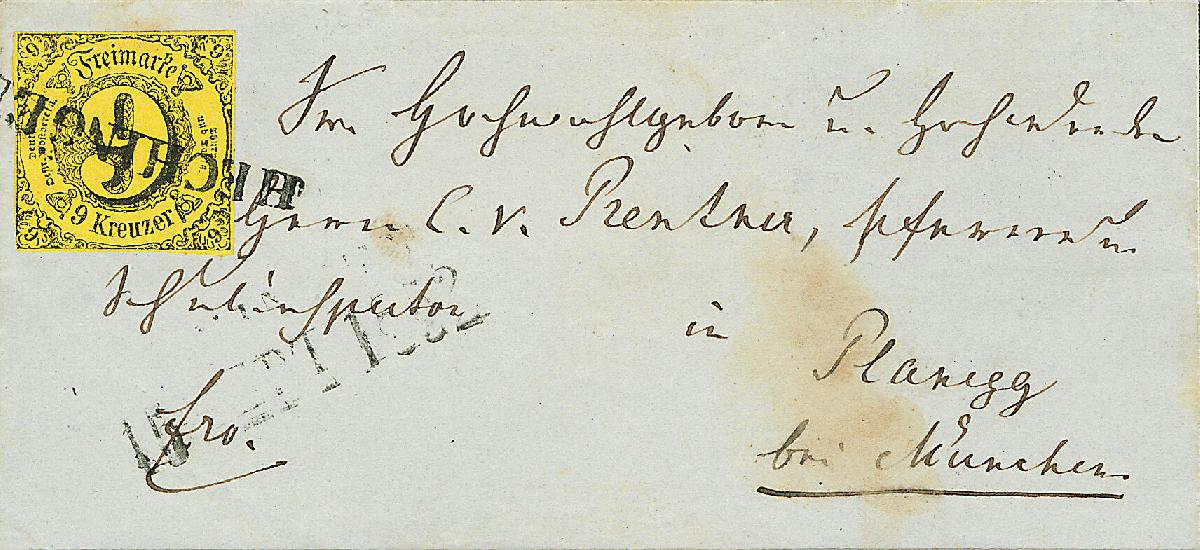 9
9
Freimarke
9
9 Kreuzer
HECHINGEN
Sr. Hochwohlgeboren u. Hochwürden
Herrn C. v. Prentner, Pfarrer u.
Schulinspector
in
Planegg
bei München.
fro.
15 SEPT 1852